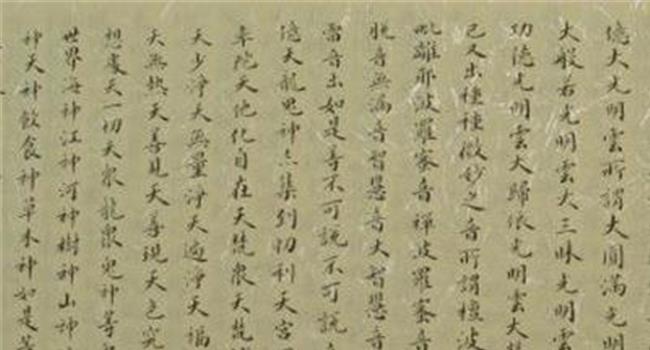 億大光明雲所謂大圓滿光明
大般若光明雲大三昧光明雲
功德光明雲大歸依光明雲大
已又出種種微妙之音所謂檀波
毗離耶波羅蜜音禪波羅蜜音
脫音無漏音智慧音大智慧音
雷音出如是等不可說不可說
億天龍鬼神亦集到忉利天宮
率陀天他化自在天梵衆天梵
天少淨天無量淨天遍淨天福
天無熱天善見天善現天色究
想處天一切天衆龍衆鬼神等
世界海神江神河神樹神山神
神天神飲食神草木神如是等